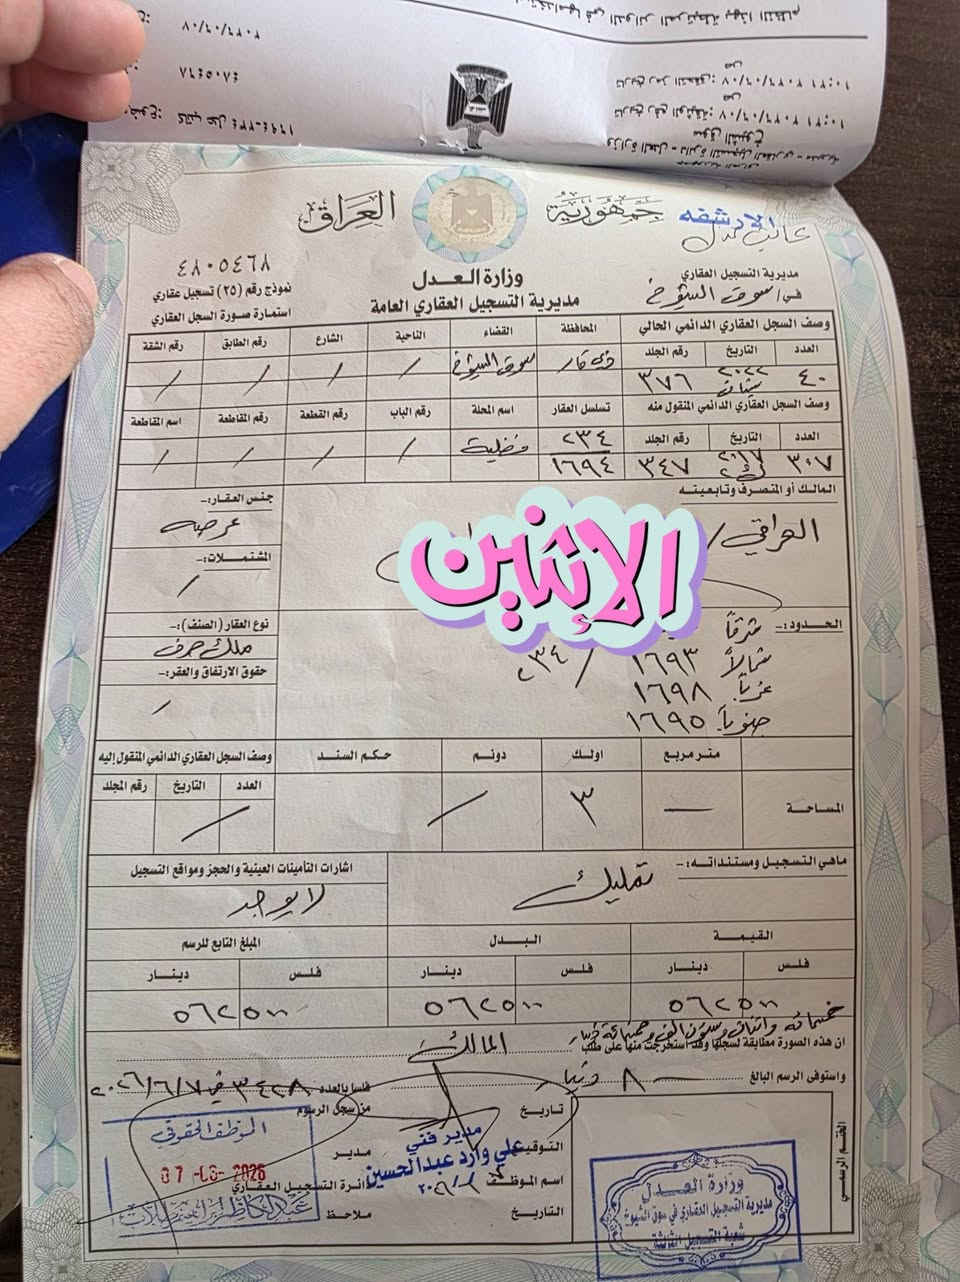 جمهورية العراق
وزارة العدل
مديرية التسجيل العقاري العامة
مديرية التسجيل العقاري
في / سوق الشيوخ
٤٨٠٥٤٦٨
نموذج رقم (٢٥) تسجيل عقاري
استمارة صورة السجل العقاري
وصف السجل العقاري الدائمي الحالي
المحافظة القضاء الناحية الشارع رقم الطابق رقم الشقة
العدد التاريخ رقم الجلد
ذي قار سوق الشيوخ / / / /
٤٠ ٢٠٢٢ ٣٧٦
وصف السجل العقاري الدائمي المنقول منه
تسلسل العقار اسم المحلة رقم الباب رقم القطعة رقم المقاطعة اسم المقاطعة
العدد التاريخ رقم الجلد
٢٣٤ فضلية / / / /
٣٠٧ ٢٠١٧ ٣٤٧ ١٦٩٤
المالك أو المتصرف وتابعيته
العراقي /
الإثنين
جنس العقار:-
عرصه
المشتملات:-
/
الحدود:-
شرقاً
شمالاً ١٦٩٣ / ٣٤
غرباً ١٦٩٨
جنوباً ١٦٩٥
نوع العقار (الصنف):-
ملك صرف
حقوق الارتفاق والعقر:-
/
متر مربع اولك دونم حكم السند
وصف السجل العقاري الدائمي المنقول إليه
العدد التاريخ رقم المجلد
المساحة — ٣ / /
ماهي التسجيل ومستنداته:-
تمليك
اشارات التأمينات العينية والحجز ومواقع التسجيل
لا يوجد
القيمة البدل المبلغ التابع للرسم
فلس دينار فلس دينار فلس دينار
٥٦٢٥٠٠ ٥٦٢٥٠٠ ٥٦٢٥٠٠
خمسمائه واثنان وستون الف وخمسمائة دينار
ان هذه الصورة مطابقة لسجلها وقد استخرجت منها على طلب المالك
واستوفى الرسم البالغ ٨٠٠٠ دينار فلسا بالعدد ٣٤٢٨ في ٢٠٢٦/٦/٧
من سجل الرسوم
تاريخ
التوقيع
اسم الموظف
التاريخ
مدير
دائرة التسجيل العقاري
ملاحظ
مدير فني
علي وارد عبدالحسين
الموظف الحقوقي
07 -06- 2026
الختم الرسمي
وزارة العدل
مديرية التسجيل العقاري في سوق الشيوخ
شعبة التسجيل الثالثة